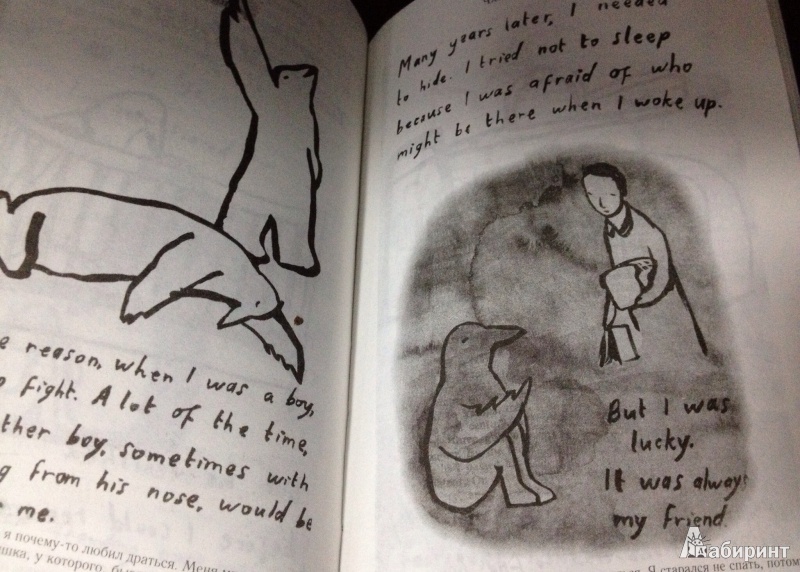 e reason, when I was a boy,
fight. A lot of the time,
ther boy, sometimes with
g from his nose, would be
me.
я почему-то любил драться. Меня
у которого,
Many years later, I needed
to hide. I tried not to sleep
because I was afraid of who
might be there when I woke up.
But I was
lucky.
It was always
my friend.
Я старался не спать, потом
Лабиринт